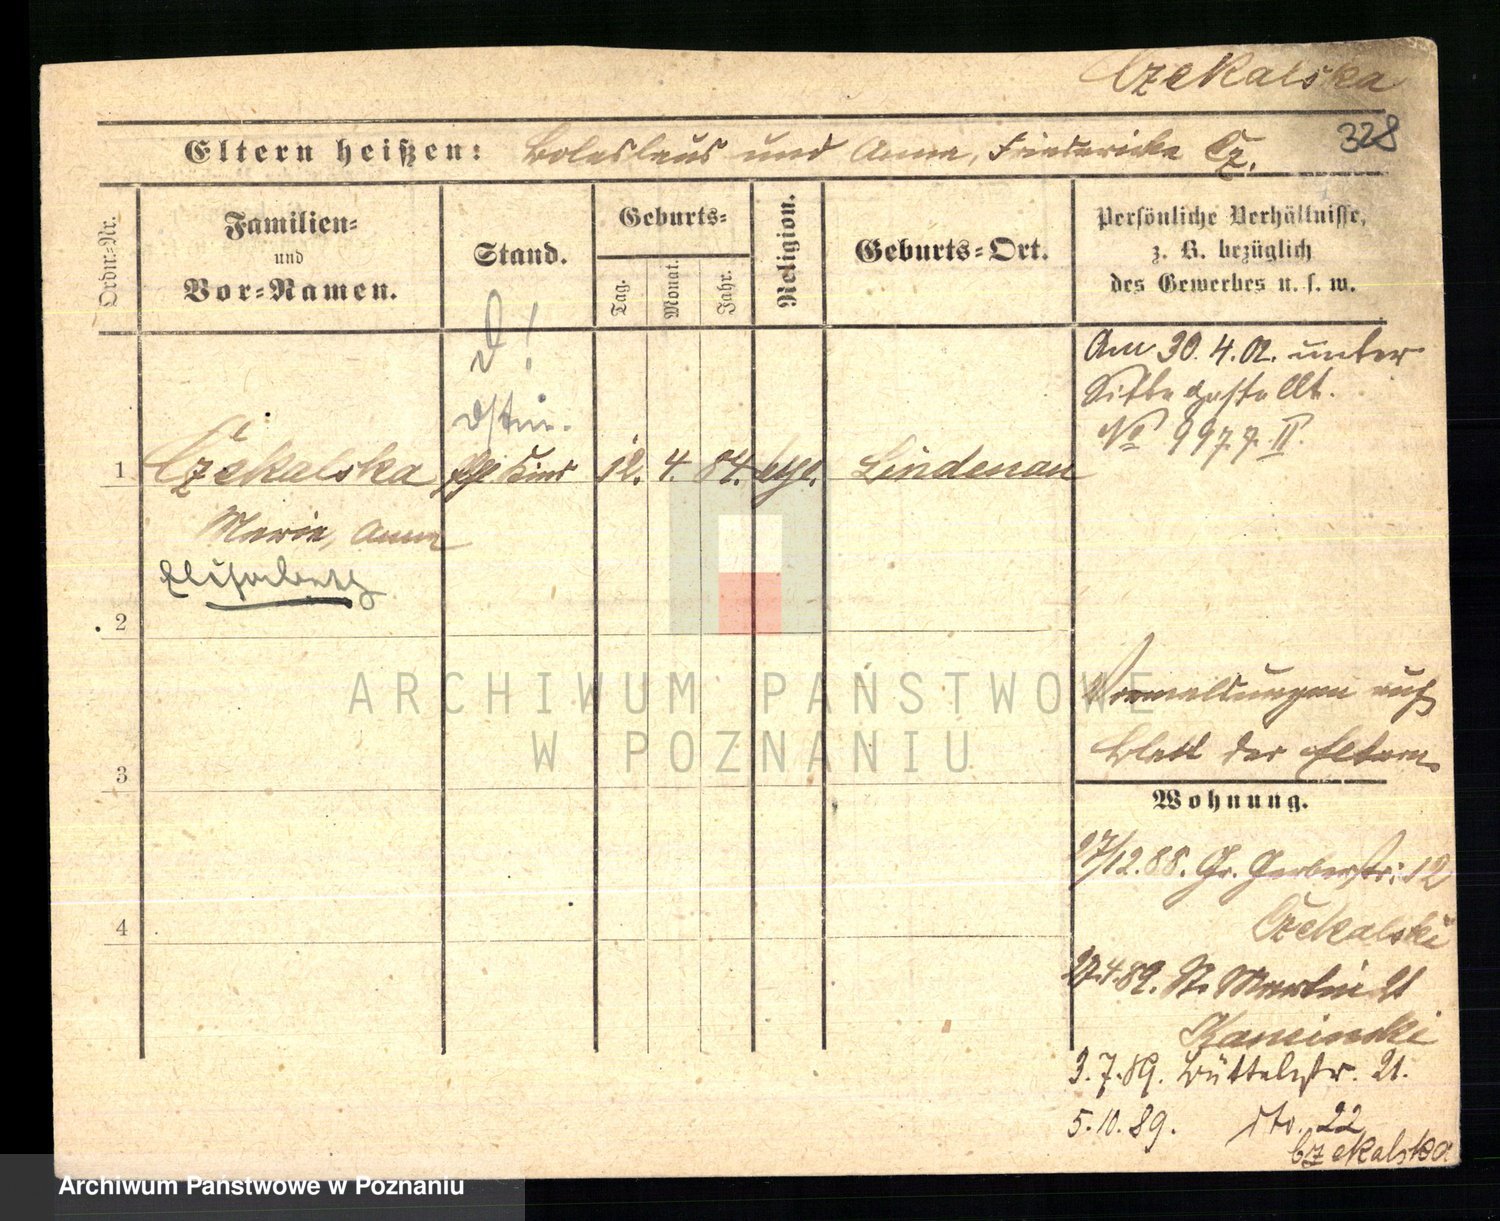 Czekalska
328
Eltern heißen: Boleslaus und Anna, Friedericke Cz.
Ordn:-Nr.
Familien-
und
Vor-Namen.
Stand.
Geburts-
Tag.
Monat.
Jahr.
Religion.
Geburts-Ort.
Persönliche Verhältnisse,
z. B. bezüglich
des Gewerbes u. s. w.
D!
Am 30.4.02. unter
Sitte gestellt.
№ 9977.II.
1 Czekalska Kind 12. 4. 84. Lindenau
Marie, Anna
Elisabeth
2
3
4
ARCHIWUM PAŃSTWOWE
W POZNANIU
auf
Blatt der Eltern.
Wohnung.
27/12.88. Gr. Gerberstr: 12
Czekalski
27.4.89. St. Martin 21
Kaminski
3.7.89. Büttelstr. 21.
5.10.89. dto. 22
Czekalska
Archiwum Państwowe w Poznaniu